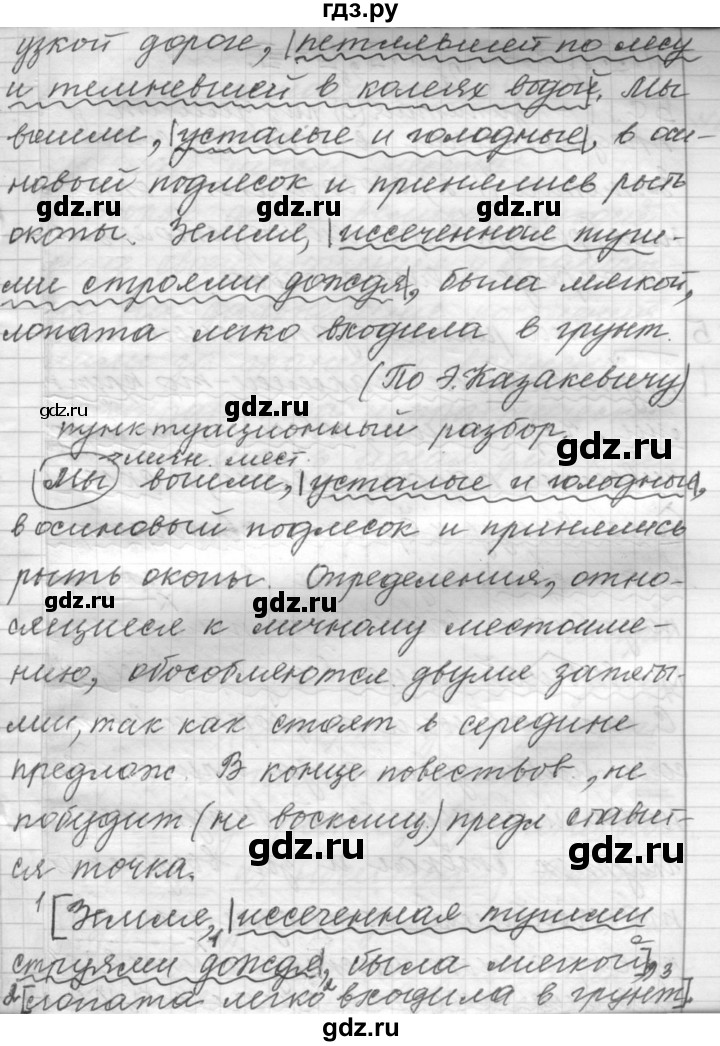 гдз.ру
узкой дороге, |петлявшей по лесу
и темневшей в колеях водой. Мы
вышли, |усталые и голодные|, в оси-
новый подлесок и принялись рыть
gdz.ru gdz.ru gdz.ru
окопы. Земля, |иссеченная туги-
ми строями дождя|, была мягкой,
лопата легко входила в грунт.
(По Э. Казакевичу)
gdz.ru gdz.ru gdz.ru
пунктуационный разбор.
личн. мест. gdz.ru
Мы вышли, |усталые и голодные|,
в осиновый подлесок и принялись
рыть окопы. Определения, отно-
gdz.ru gdz.ru gdz.ru
сящиеся к личному местоиме-
нию, обособляются двумя запяты-
ми, так как стоят в середине
предлож. В конце повествов., не
побудит (не восклиц.) предл ставит-
gdz.ru gdz.ru
ся точка.
1 [Земля, |иссеченная тугими
1
струями дождя|, была мягкой], 3
gdz.ru gdz.ru gdz.ru
2 [лопата легко входила в грунт].
gdz.ru